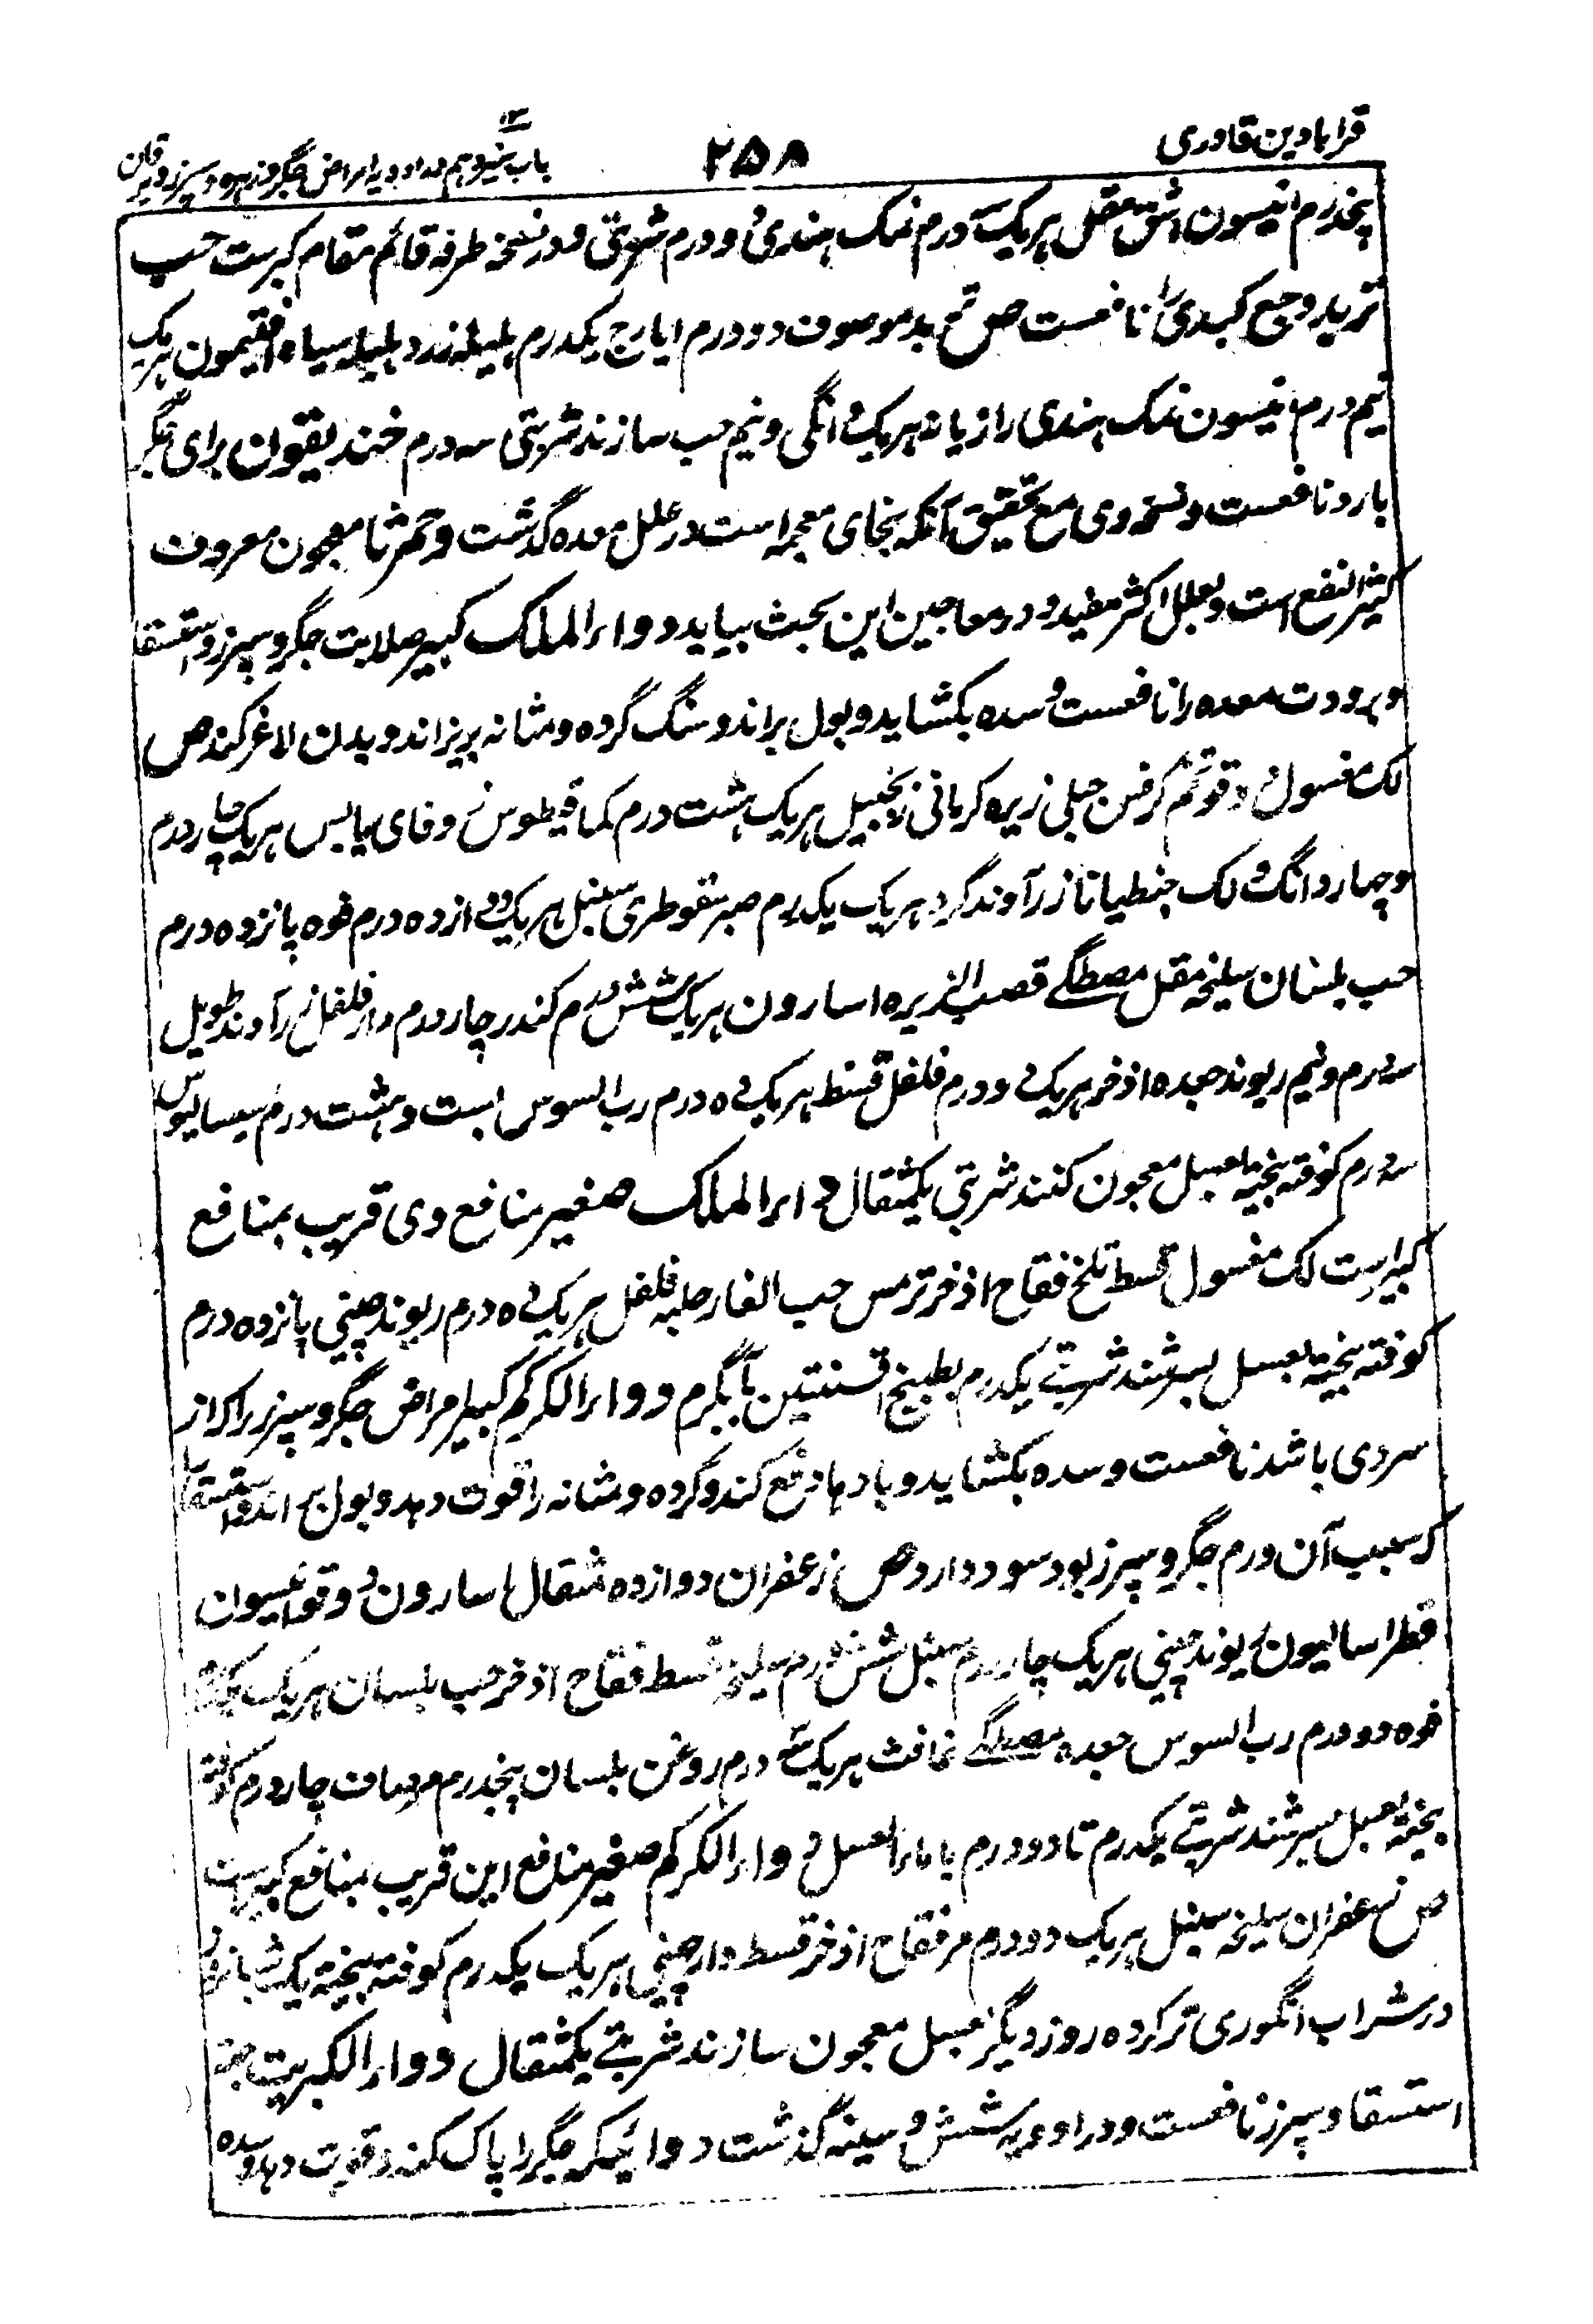 قرابادین قادری
۲۵۸
باب سیزدهم در ادویه امراض جگر و سپرز و یرقان
پنجدرم انیسون اشق مقل هریک درم نمک هندی دو درم شربتی و در نسخه طرفه قائم مقام کبرست حب
تربد وجع کبدی را نافعست ص تربد موصوف دو درم ایارج یکدرم هلیله زرد هلیله سیاه افتیمون هریک
نیم درم انیسون نمک هندی رازیانه هریک دانگی و نیم حب سازند شربتی سه درم خندیقون برای جگر
بارد نافعست و نسخه وی مع تحقیق آنکه بخای معجمه است در علل معده گذشت و تمرثا معجون معروف
کثیر النفع است و بعلل اکثر مفید و در معاجین این بحث بیاید دواء الملک کبیر صلابت جگر و سپرز و استسقا
و برودت معده را نافعست و سده بکشاید و بول براند و سنگ گرده و مثانه بریزاند و بدن لاغر کند ص
لک مغسول دوقو تخم کرفس جبلی زیره کرمانی زنجبیل هریک هشت درم کمافیطوس زوفای یابس هریک چاردرم
و چهار دانگ لک جنطیانا زرآوند گرد هریک یکدرم صبر سقوطری سنبل هریک دوازده درم فوه پانزده درم
حب بلسان سلیخه مقل مصطگے قصب الذریره اسارون هریک شش درم کندر چاردرم دارفلفل زرآوند طویل
سه درم و نیم ریوند جعده اذخر هریک دو درم فلفل قسط هریک ده درم رب السوس بست و هشت درم سیسالیوس
سه درم کوفته بیخته بعسل معجون کنند شربتی یکمثقال دواء الملک صغیر منافع وی قریب بمنافع
کبیر است لک مغسول قسط تلخ فقاح اذخر ترمس حب الغار حلبه فلفل هریک ده درم ریوند چینی پانزده درم
کوفته بیخته بعسل بسرشند شربتے یکدرم بطبیخ افسنتین یا آبگرم دواء الکرکم کبیر امراض جگر و سپرز را که از
سردی باشد نافعست و سده بکشاید و بادها دفع کند و گرده و مثانه را قوت دهد و بول براند و استسقا را
که سبب آن ورم جگر و سپرز بود سود دارد ص زعفران دوازده مثقال اسارون دوقو انیسون
فطراسالیون ریوند چینی هریک چاردرم سنبل شش درم سلیخه قسط فقاح اذخر حب بلسان هریک
فوه دو درم رب السوس جعده مصطگے غافث هریک سه درم روغن بلسان پنجدرم مرصاف چاردرم کوفته
بیخته بعسل بسرشند شربتے یکدرم تا دو درم با ماء العسل دواء الکرکم صغیر منافع این قریب بمنافع کبیر است
ص زعفران سلیخه سنبل هریک دو درم مر فقاح اذخر قسط دارچینی هریک یکدرم کوفته بیخته یک شبانروز
در شراب انگوری تر کرده روز دیگر بعسل معجون سازند شربتے یکمثقال دواء الکبریت جهت
استسقا و سپرز نافعست و در ادویه شش و سینه گذشت دوائیکه جگر را پاک کند و قوت دهد و سده